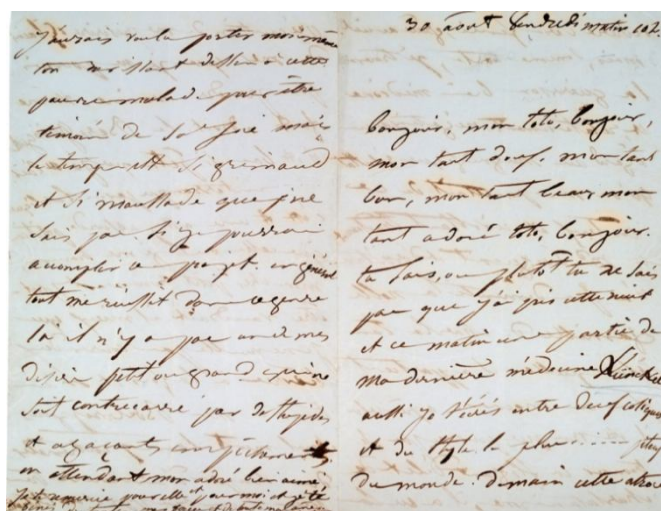 J'aurais voulu porter moi-même
ton dessin à cette
pauvre malade pour être
témoin de sa joie mais
le temps est si grimaud
et si maussade que je ne
sais pas si je pourrai
accomplir ce projet. en général
tout me réussit dans ce genre
là il n'y a pas un de mes
désirs petit ou grand qui ne
soit contrecarré par de stupides
et agaçants empêchements.
en attendant mon adoré bien aimé
je te remercie pour elle et pour moi et je te
de toutes mes et de toute mon âme
30 août vendredi matin 10 h
bonjour, mon toto, bonjour,
mon tant doux. mon tant
bon, mon tant beau mon
tant adoré toto, bonjour.
tu sais, ou plutôt tu ne sais
pas que j'ai pris cette nuit
et ce matin une partie de
ma dernière médecine
aussi je t'écris entre deux coliques
et du style le plus
du monde. demain cette